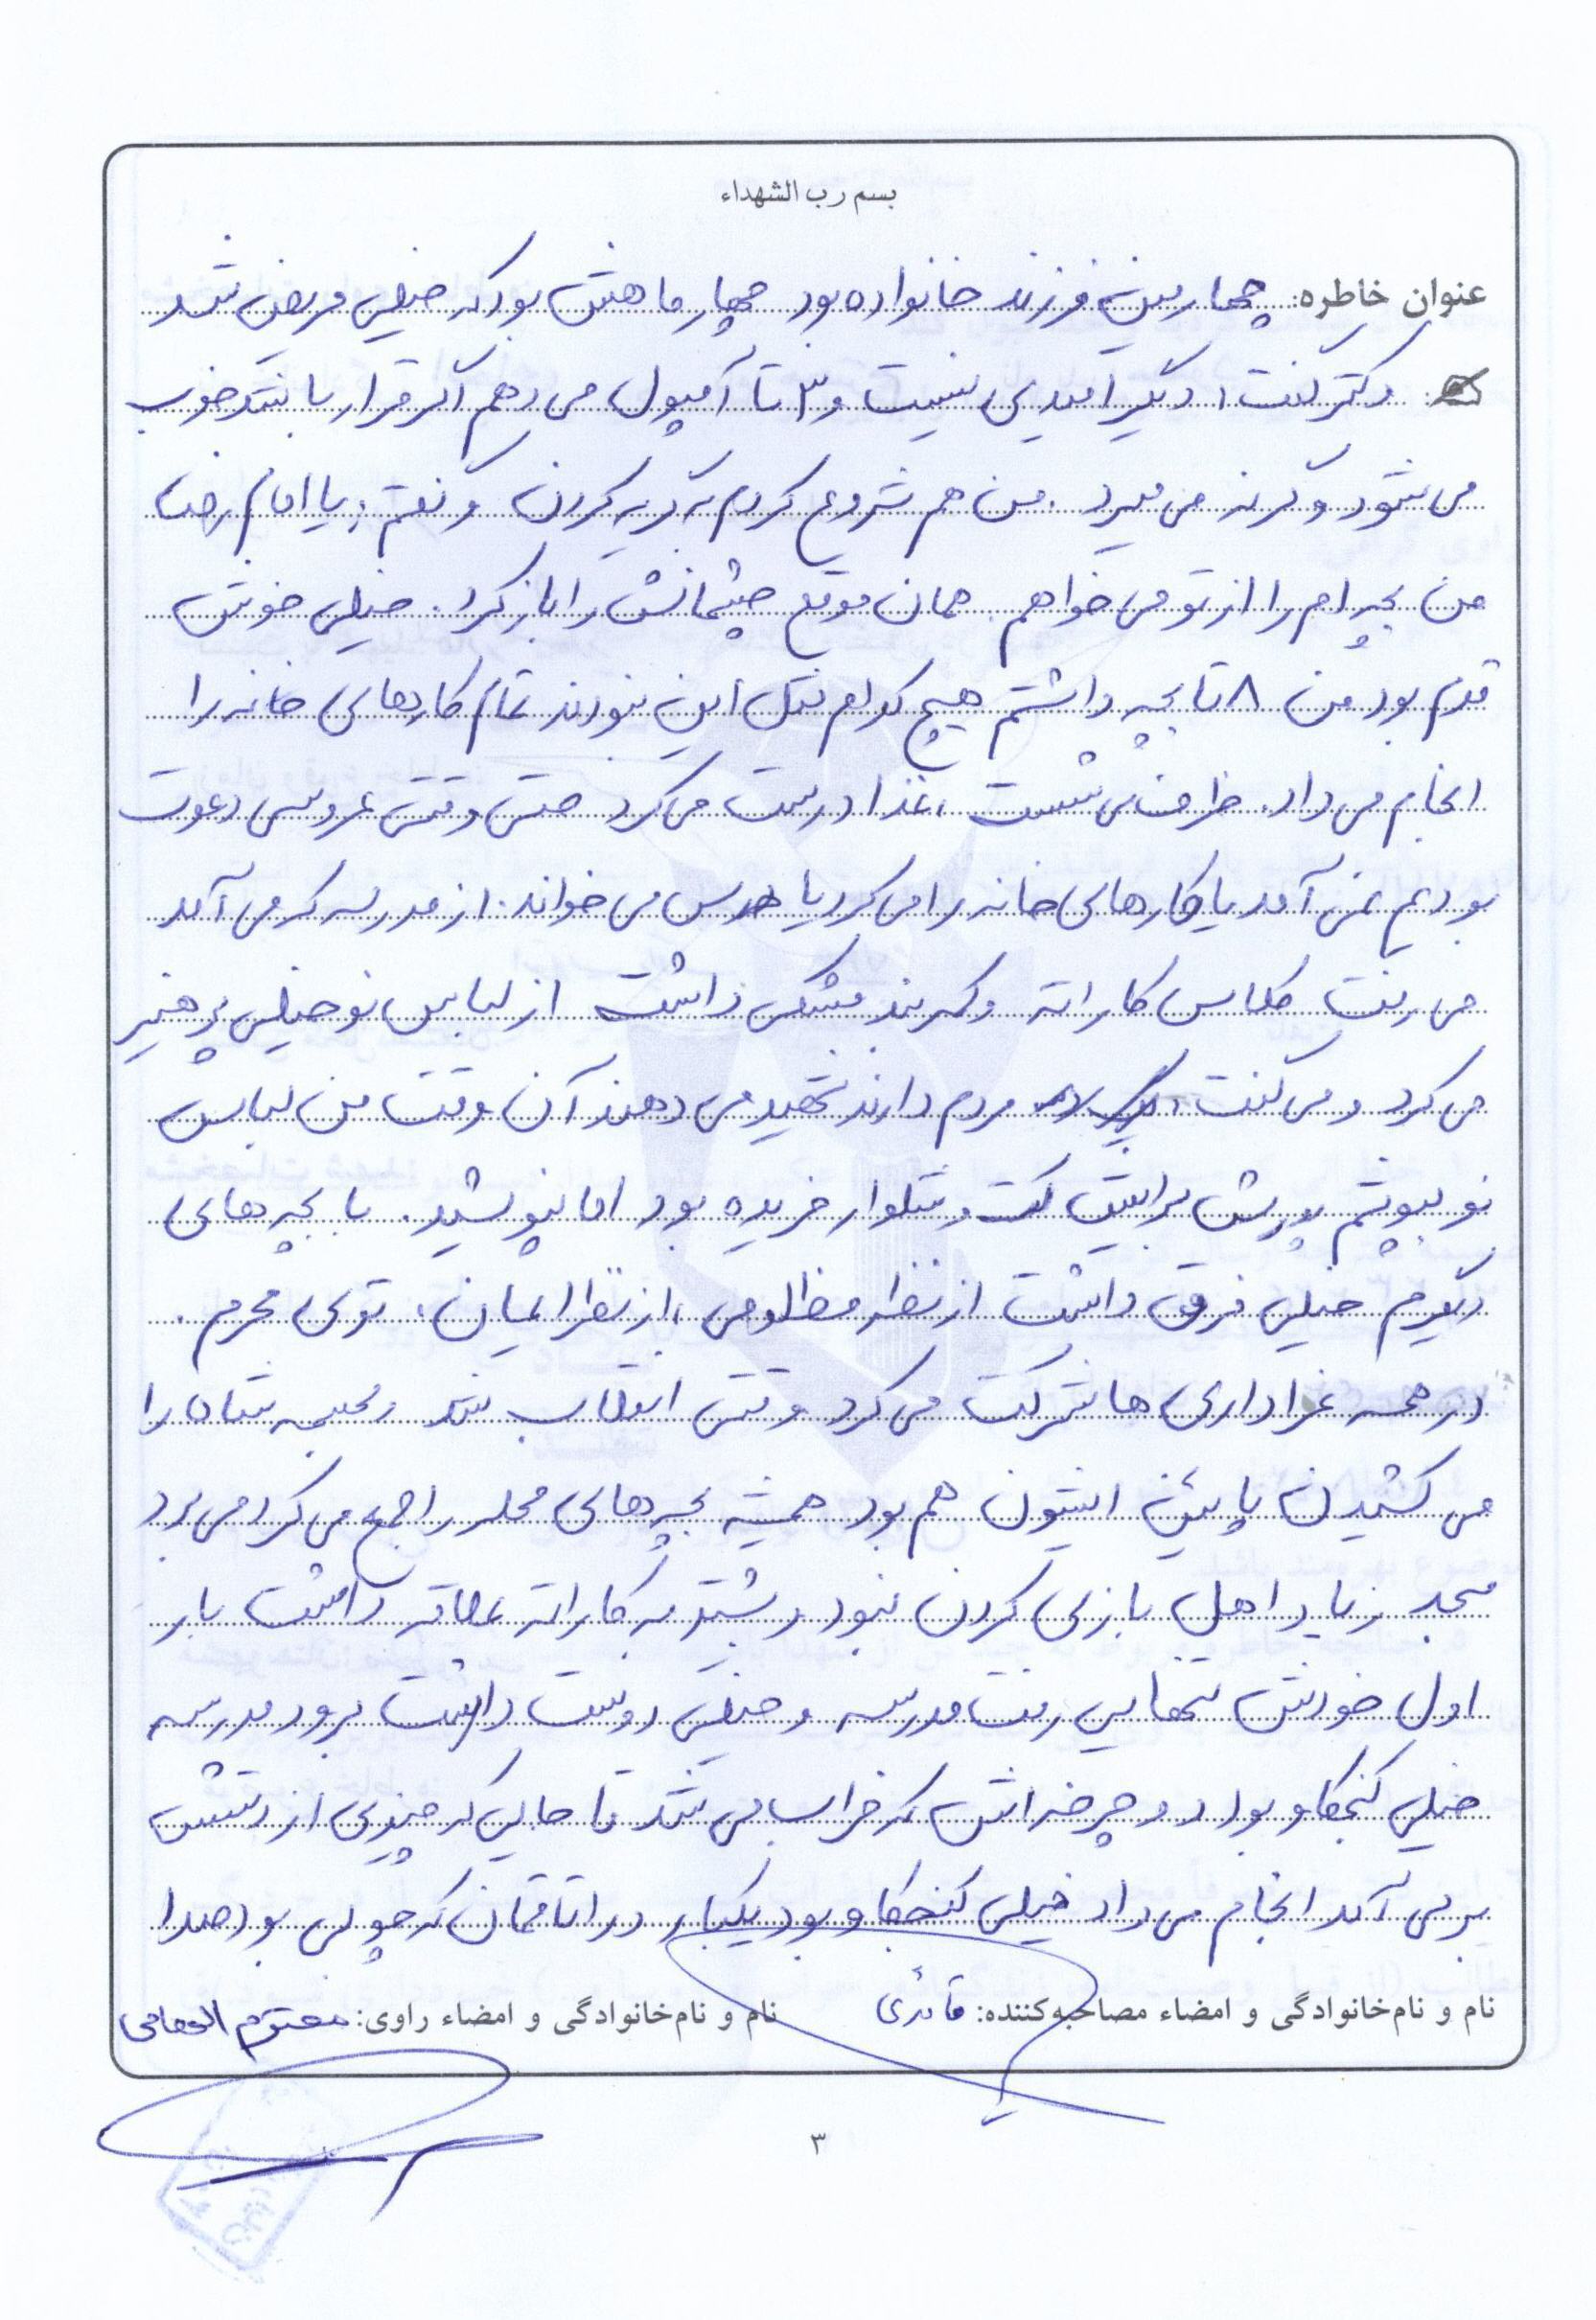 بسم رب الشهداء
عنوان خاطره: چهارمین فرزند خانواده بود چهار ماهش بود که خیلی مریض شد
دکتر گفت: دیگر امیدی نیست و ۳ تا آمپول می دهم اگر قرار باشد خوب
می شود وگرنه می میرد. من هم شروع کردم به گریه کردن و گفتم: یا امام رضا
من بچه ام را از تو می خواهم. همان موقع چشمانش را باز کرد. خیلی خوش
قدم بود من ۸ تا بچه داشتم هیچ کدام مثل این نبودند تمام کارهای خانه را
انجام می داد. ظرف می شست، غذا درست می کرد حتی وقتی عروسی دعوت
بودیم نمی آمد یا کارهای خانه را می کرد یا درس می خواند. از مدرسه که می آمد
می رفت کلاس کاراته و کمربند مشکی داشت از لباس نو خیلی پرهیز
می کرد و می گفت: مردم دارند شهید می دهند آن وقت من لباس
نو بپوشم پدرش برایش کت و شلوار خریده بود اما نپوشید. با بچه های
دیگرم خیلی فرق داشت از نظر مظلومی، از نظر ایمان، توی محرم.
در همه عزاداری ها شرکت می کرد وقتی انقلاب شد مجسمه شاه را
می کشیدن پایین ایشون هم بود همیشه بچه های محله را جمع می کرد می برد
مسجد زیاد اهل بازی کردن نبود و بیشتر به کاراته علاقه داشت بار
اول خودش تنهایی رفت مدرسه و خیلی دوست داشت برود مدرسه
خیلی کنجکاو بود دوچرخه اش که خراب می شد تا جایی که چیزی از دستش
بر می آمد انجام می داد خیلی کنجکاو بود یکبار در اتاقمان که چوبی بود صدا
نام و نام‌خانوادگی و امضاء مصاحبه‌کننده: قائدی نام و نام‌خانوادگی و امضاء راوی: محترم
۳